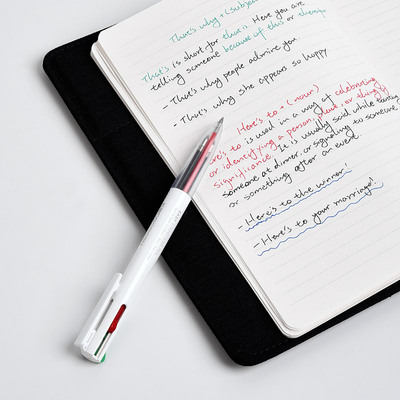 That's why + (subject
That's is short for that is. Here you are
telling someone because of this or therefo
- That's why people admire you
- That's why she appears so happy
Here's to + (noun)
re's to is used in a way of celebrating
or identifying a person, place, or thing of
significance. It is usually said while toasting
someone at dinner, or signaling to someone
or something after an event.
- Here's to the winner!
- Here's to your marriage!